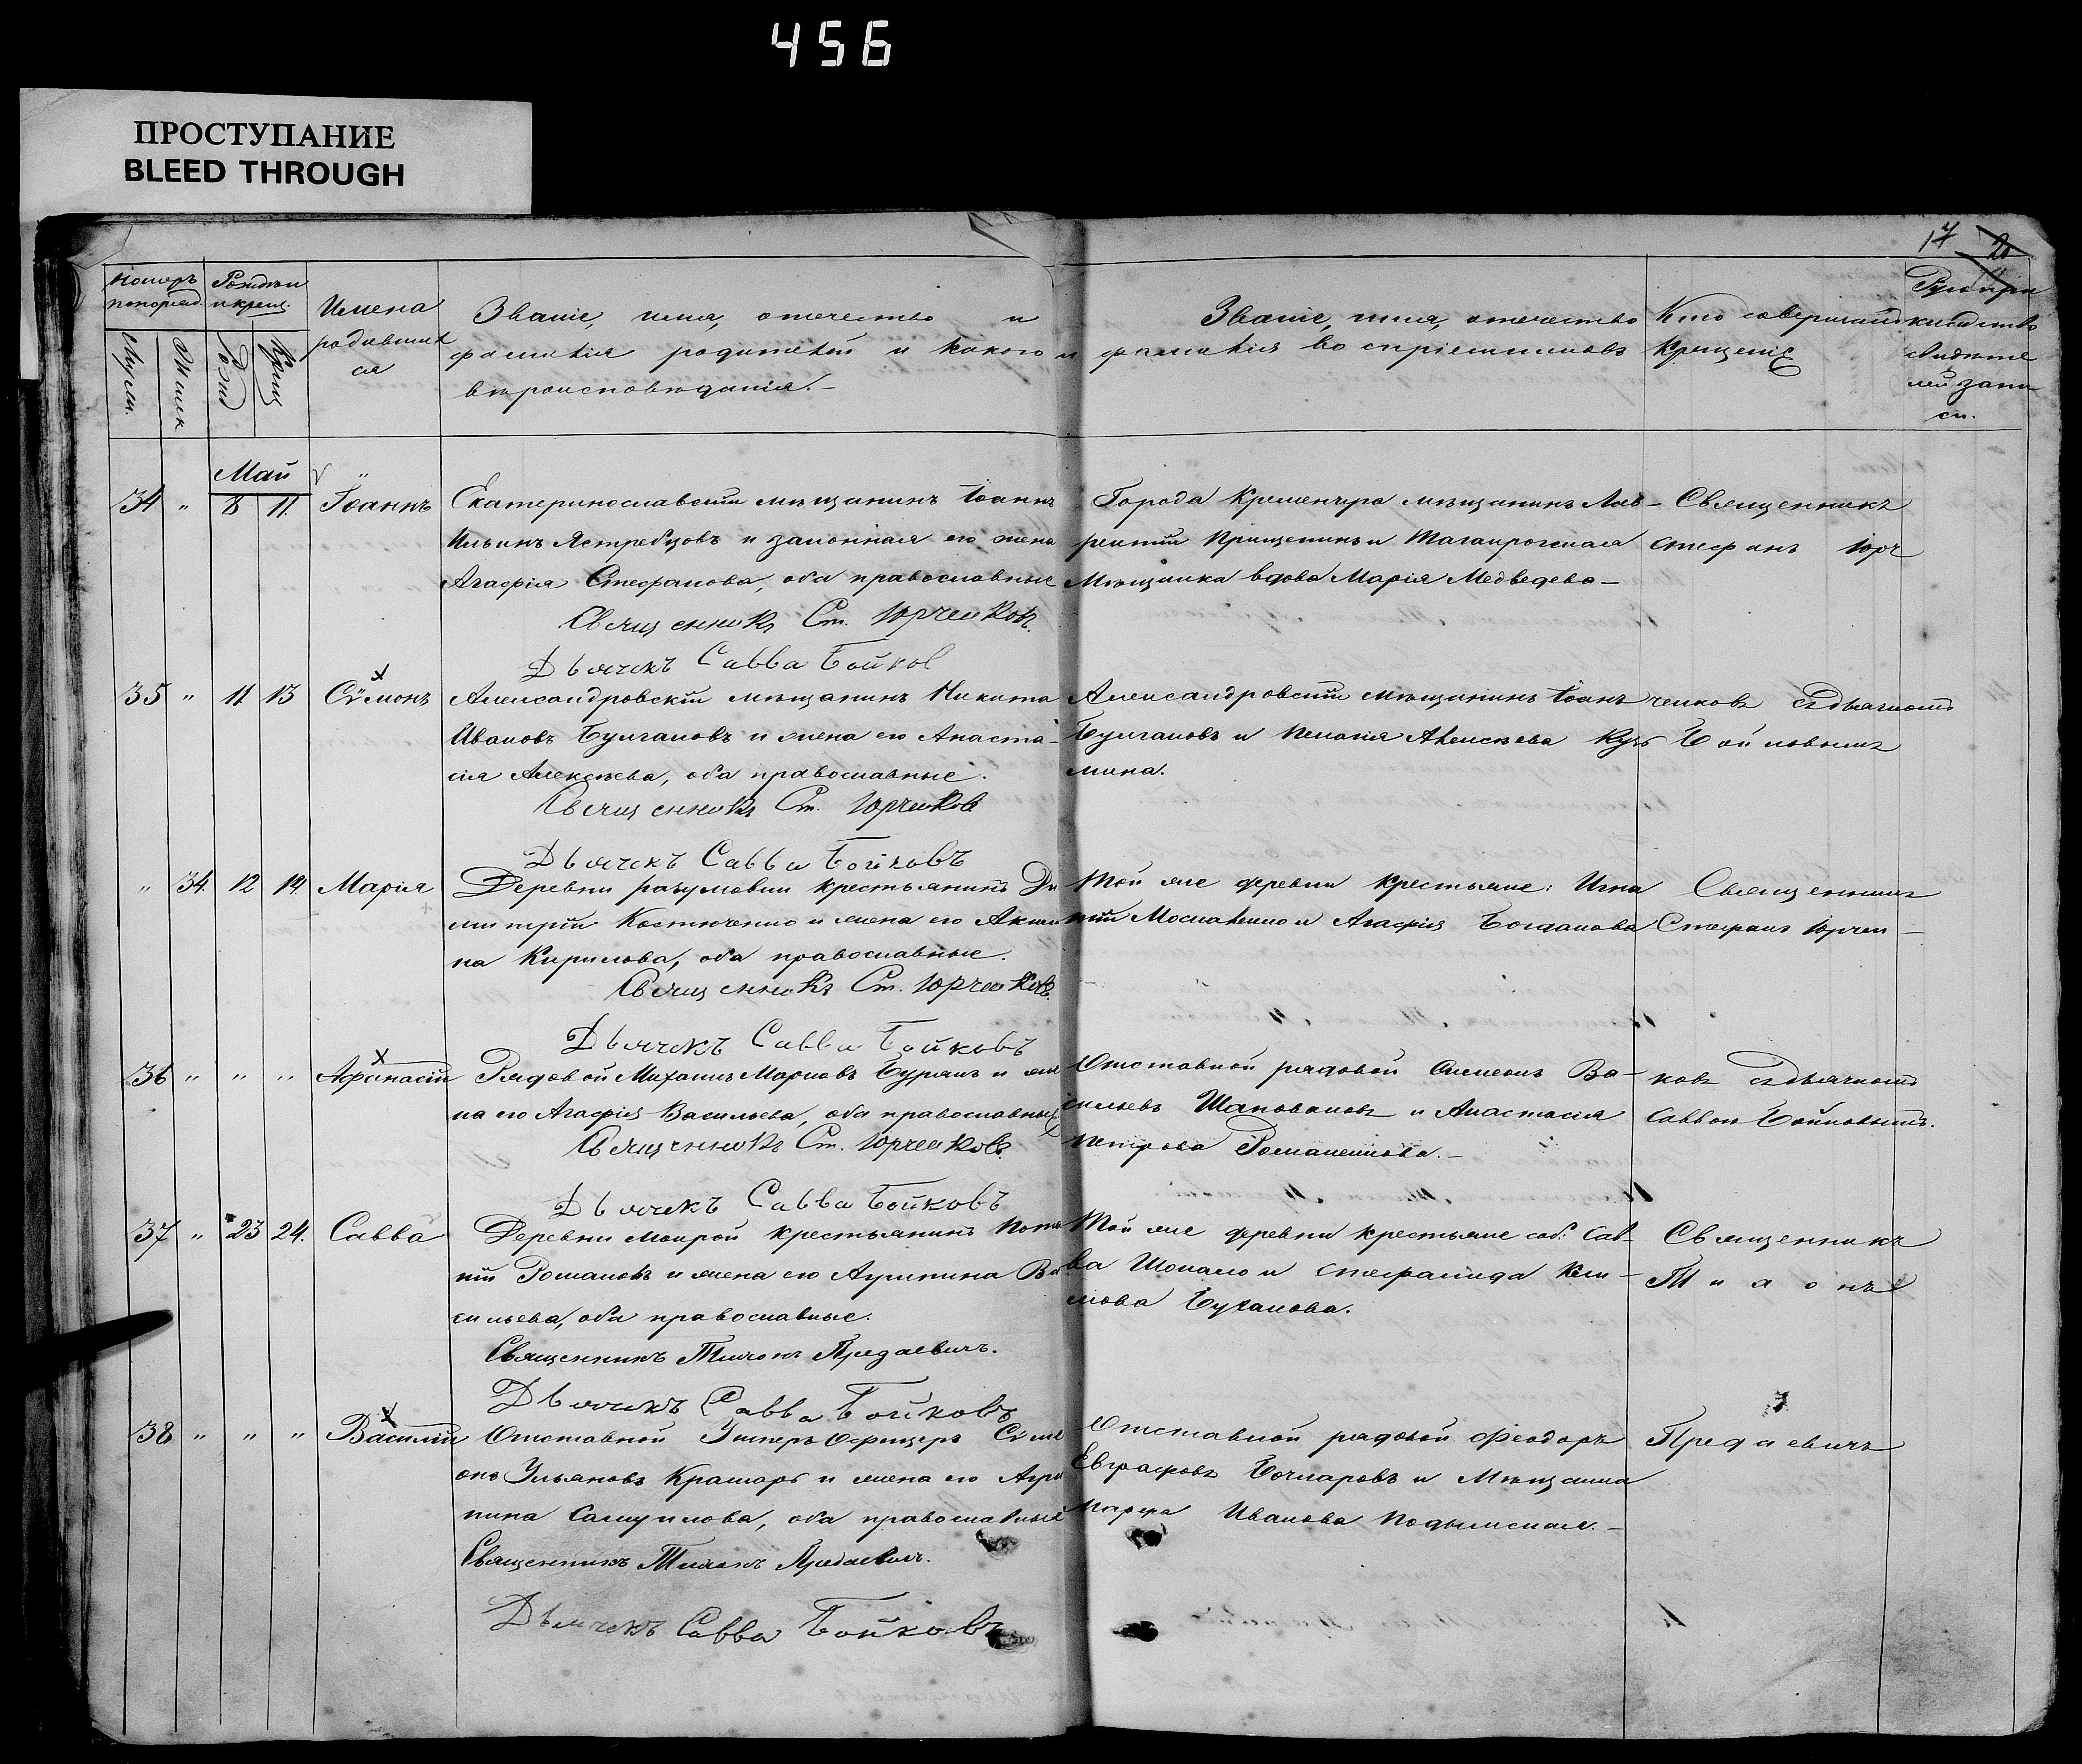 456
ПРОСТУПАНИЕ
BLEED THROUGH
17 20
Номеръ
попоряд.
Мужес.
Женск
Рожден
и крещ.
Рожд
Крещ
Имена
родивших
ся
Званіе, имя, отечество и
фамилія родителей и какого
вѣроисповѣданія.-
Званіе, имя, отечество
и фамилія воспріемниковъ
Кто совершалъ
крещеніе
Рукопри
кладство
свидѣте
лей запи
си.
Май
34 " 8 11. Іоаннъ
Екатеринославскій мѣщанинъ Іоаннъ
Ильинъ Ястребцовъ и законная его жена
Агафія Стефанова, оба православные
Священникъ Ст. Юрченковъ.
Дьячекъ Савва Бойков
Города Кременчуга мѣщанинъ Лав-
рентій Прищепинъ и Таганрогская
мѣщанка вдова Марія Медведева-
Священникъ
Стефанъ Юрч
35 " 11 13 Сѵмонъ
Александровскій мѣщанинъ Никита
Ивановъ Булгаковъ и жена его Анаста-
сія Алексѣева, оба православные.
Священникъ Ст. Юрченков
Дьячекъ Савва Бойковъ
Александровскій мѣщанинъ Іоанъ
Булгаковъ и Пелагія Алексѣева Кузь
мина.
ченковъ съ дьячкомъ
Бойковымъ
" 34. 12 14. Марія
Деревни Разумовки крестьянинъ Ди
митрій Костюченко и жена его Акили
на Кирилова, оба православные.
Священникъ Ст. Юрченковъ.
Дьячекъ Савва Бойковъ
Той же деревни крестьяне: Игна
тій Москаленко и Агафія Богданова
Священникъ
Стефанъ Юрчен-
36 " " " Афанасій
Рядовой Михаилъ Марковъ Бурякъ и же
на его Агафія Васильева, оба православные
Священникъ Ст. Юрченковъ.
Дьячекъ Савва Бойковъ
Отставной рядовой Симеонъ Ва-
сильевъ Шаповаловъ и Анастасія
Петрова Романенкова.-
ковъ съ дьячкомъ
Саввою Бойковымъ.
37 " 23 24. Савва
Деревни Мокрой крестьянинъ
тій Романовъ и жена его Агрипина Ва
сильева, оба православные.
Священникъ Тихонъ Предаевичъ.
Дьячекъ Савва Бойковъ
Той же деревни крестьяне соб: Сав-
ва Шопало и Стефанида Кли-
мова Буханова.
Священникъ
Тихонъ
38 " " " Василій
Отставной Унтеръ Офицеръ Сѵме
онъ Ульяновъ Крамарь и жена его Агри
пина Самуилова, оба православные
Священникъ Тихонъ Предаевичъ.
Дьячекъ Савва Бойковъ
Отставной рядовой Феодоръ
Евграфовъ Бочкаровъ и мѣщанка
Марфа Иванова Подымская.-
Предаевичъ